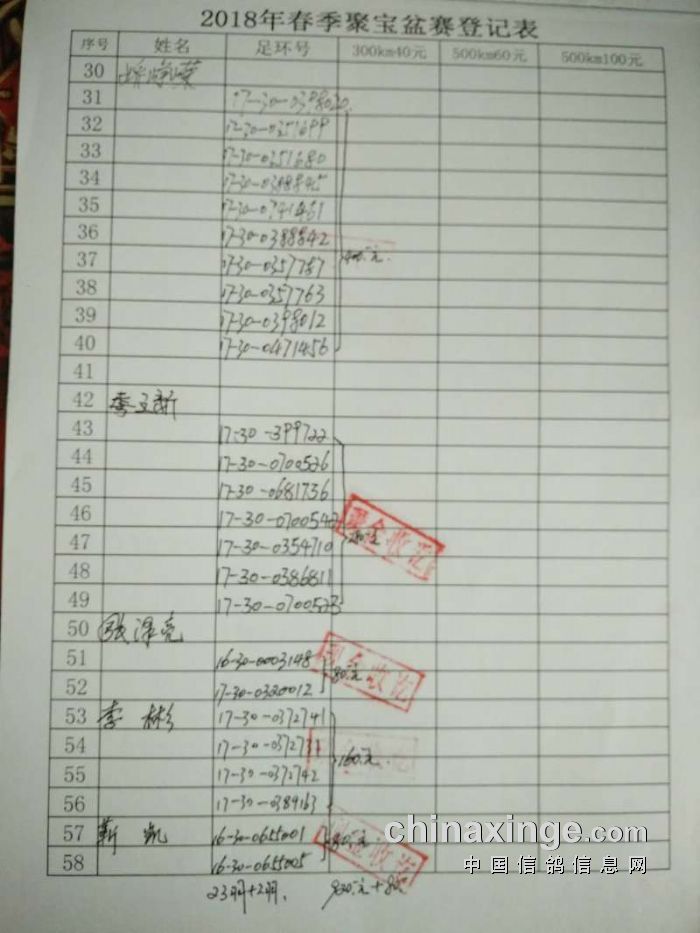 2018年春季聚宝盆赛登记表
序号 姓名 足环号 300km40元 500km60元 500km100元
30
31 17-30-0398020
32 17-30-0351699
33 17-30-0351680
34 17-30-0388845
35 17-30-0741461
36 17-30-0388842
37 17-30-0357757
38 17-30-0357763
39 17-30-0398012
40 17-30-0471456
41
42 季玉新
43 17-30-399722
44 17-30-0700526
45 17-30-0681736
46 17-30-0700542
47 17-30-0354710
48 17-30-0386811
49 17-30-0700523
现金收讫
50 张泽亮
51 16-30-0003148
52 17-30-0320012
80元
现金收讫
53 李彬 17-30-0372741
54
55 17-30-0372742
56 17-30-0389163
160元
57 靳凯 16-30-0655001
58 16-30-0655005
80元
现金收讫
23羽+2羽. 920元+80元
chinaxinge.com
中国信鸽信息网